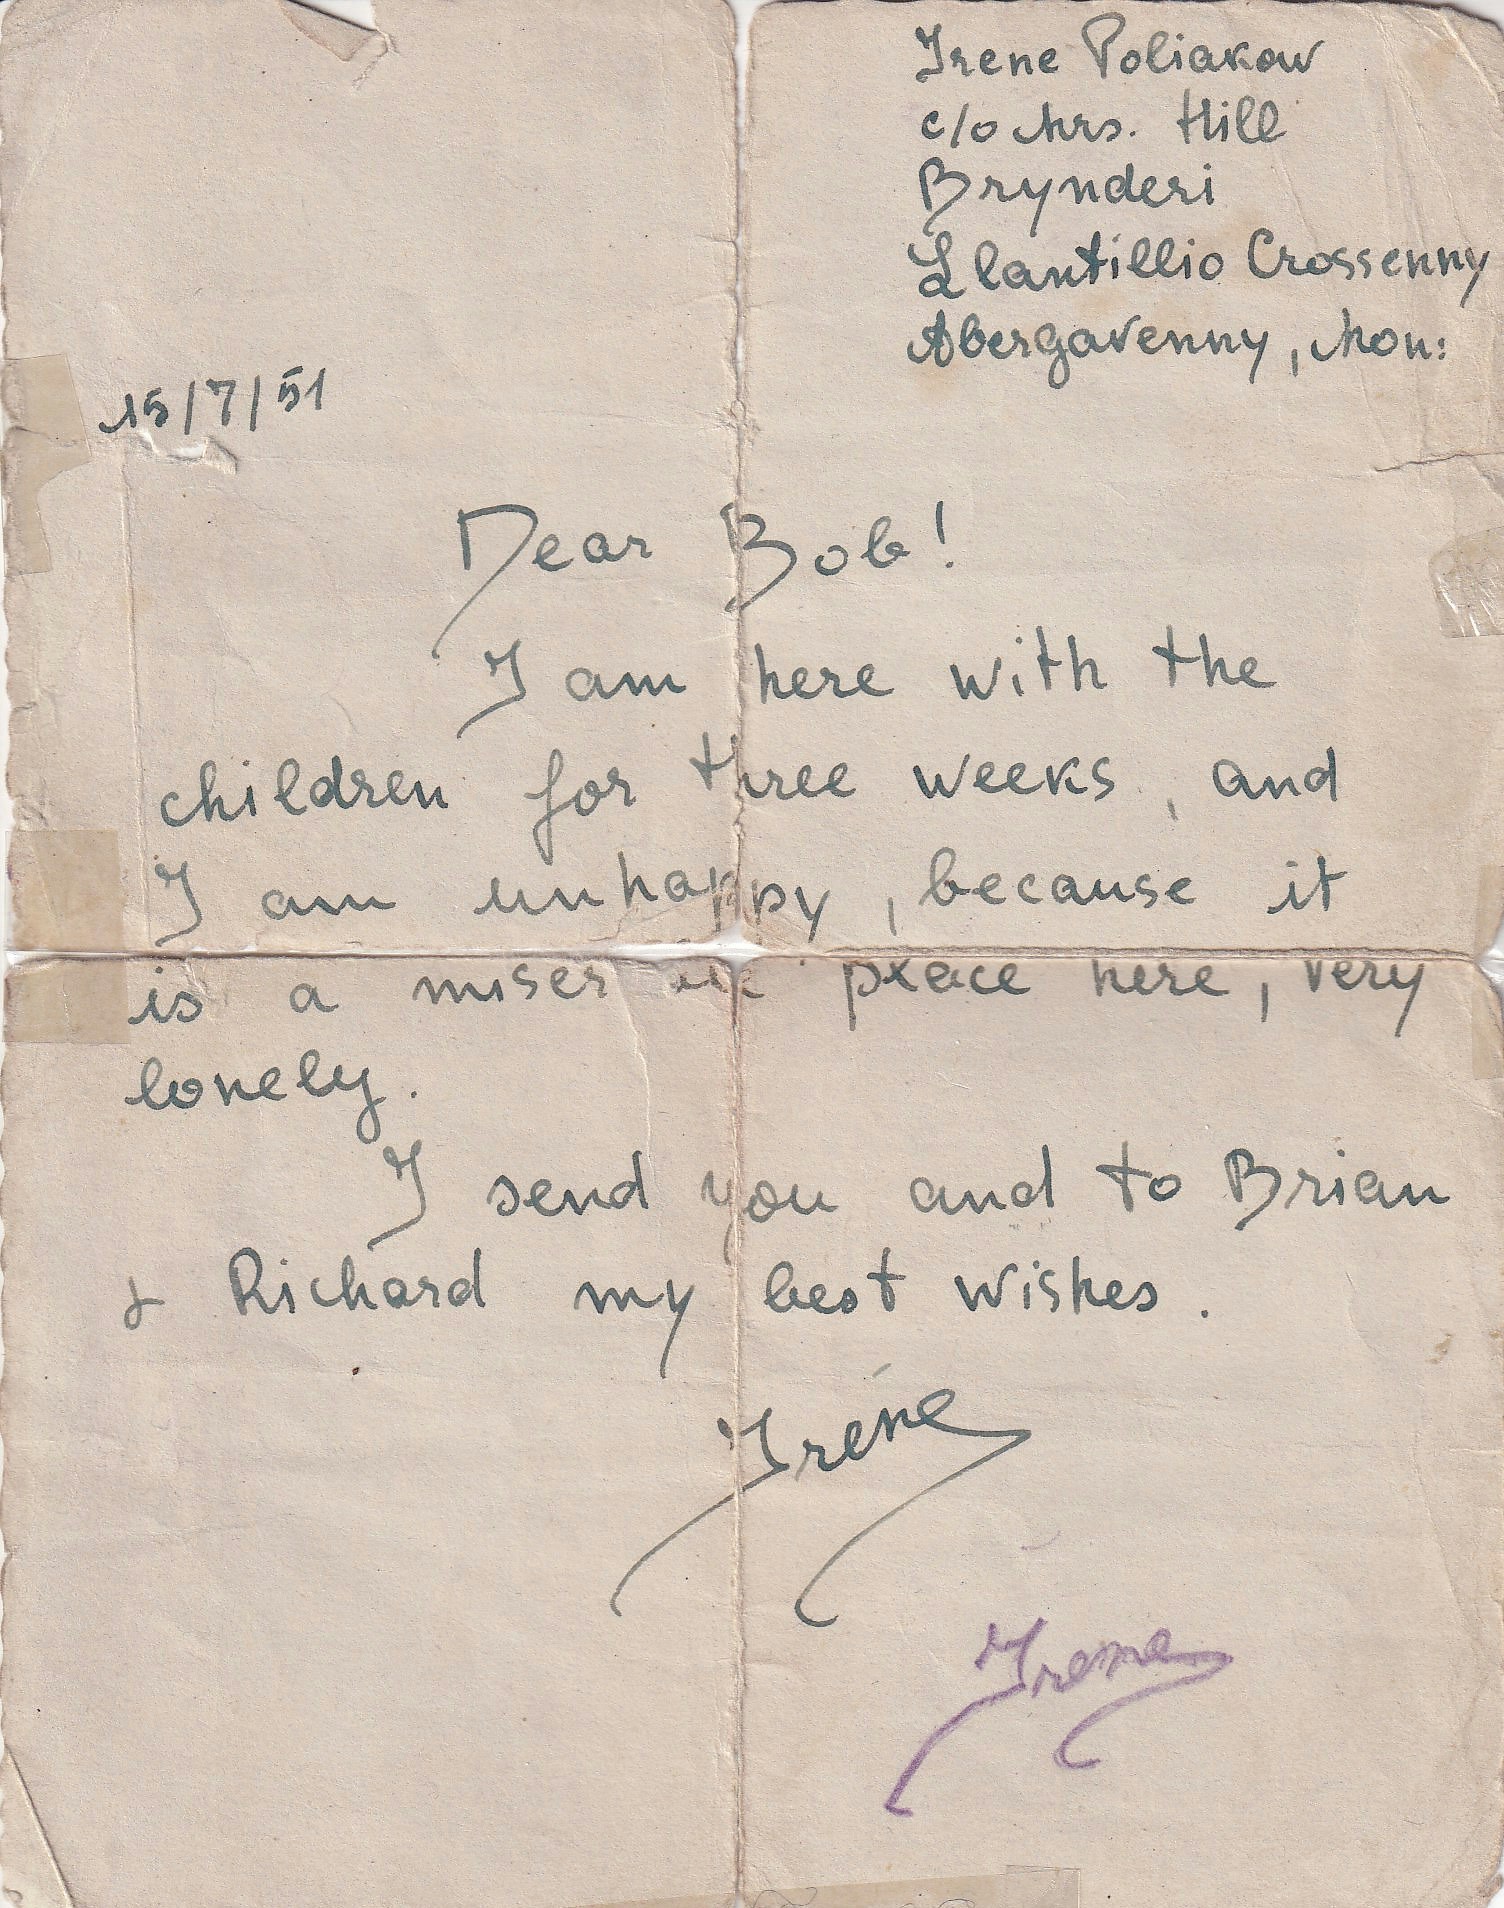 Irene Poliakow
c/o Mrs. Hill
Brynderi
Llantillio Crossenny
Abergavenny, Mon:
15/7/51
Dear Bob!
I am here with the
children for three weeks, and
I am unhappy, because it
is a miserable place here, very
lonely.
I send you and to Brian
& Richard my best wishes.
Irene
Irene